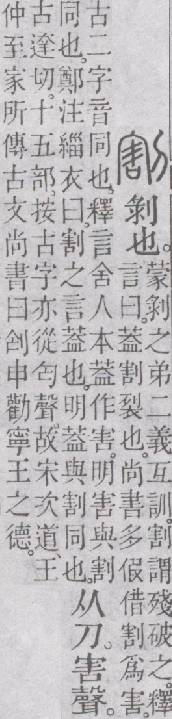 割剝也。
蒙剝之弟二義互訓。割謂殘破之。釋
言曰。葢割裂也。尚書多假借割爲害。
古二字音同也。釋言舍人本葢作害。明害與割
同也。鄭注緇衣曰。割之言葢也。明葢與割同也。
从刀。害聲。
古達切。十五部。按古字亦從匃聲。故宋次道、王
仲至家所傳古文尚書曰申勸寧王之德。